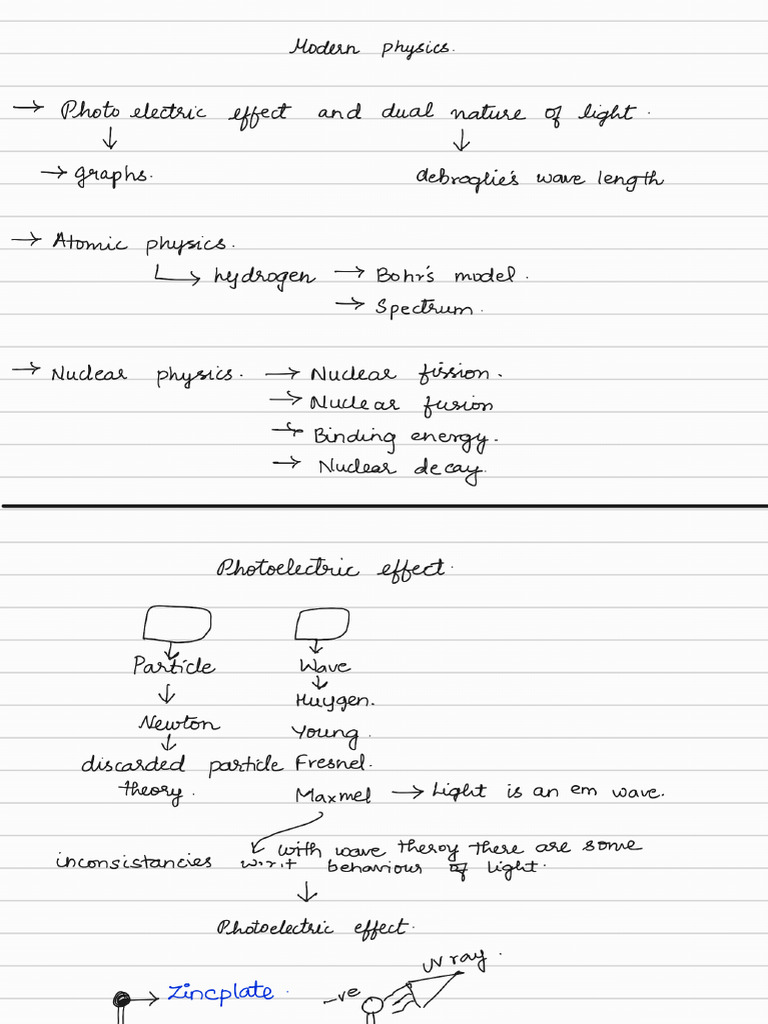 Modern physics.
→ Photo electric effect and dual nature of light.
→ graphs. debroglie's wave length
→ Atomic physics.
hydrogen → Bohr's model.
→ Spectrum.
→ Nuclear physics. → Nuclear fission.
→ Nuclear fusion
→ Binding energy.
→ Nuclear decay.
Photoelectric effect.
Particle Wave
Huygen.
Newton Young.
discarded particle Fresnel.
theory. Maxmel → Light is an em wave.
with wave theroy there are some
inconsistancies w.r.t behaviour of light.
Photoelectric effect.
UV ray.
→ Zincplate. -ve